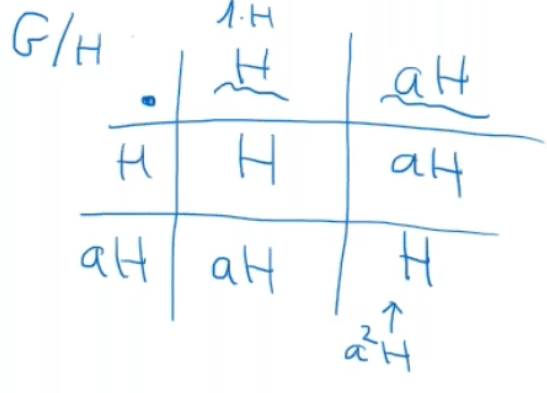 G/H
1·H
· H aH
H H aH
aH aH H
a²H